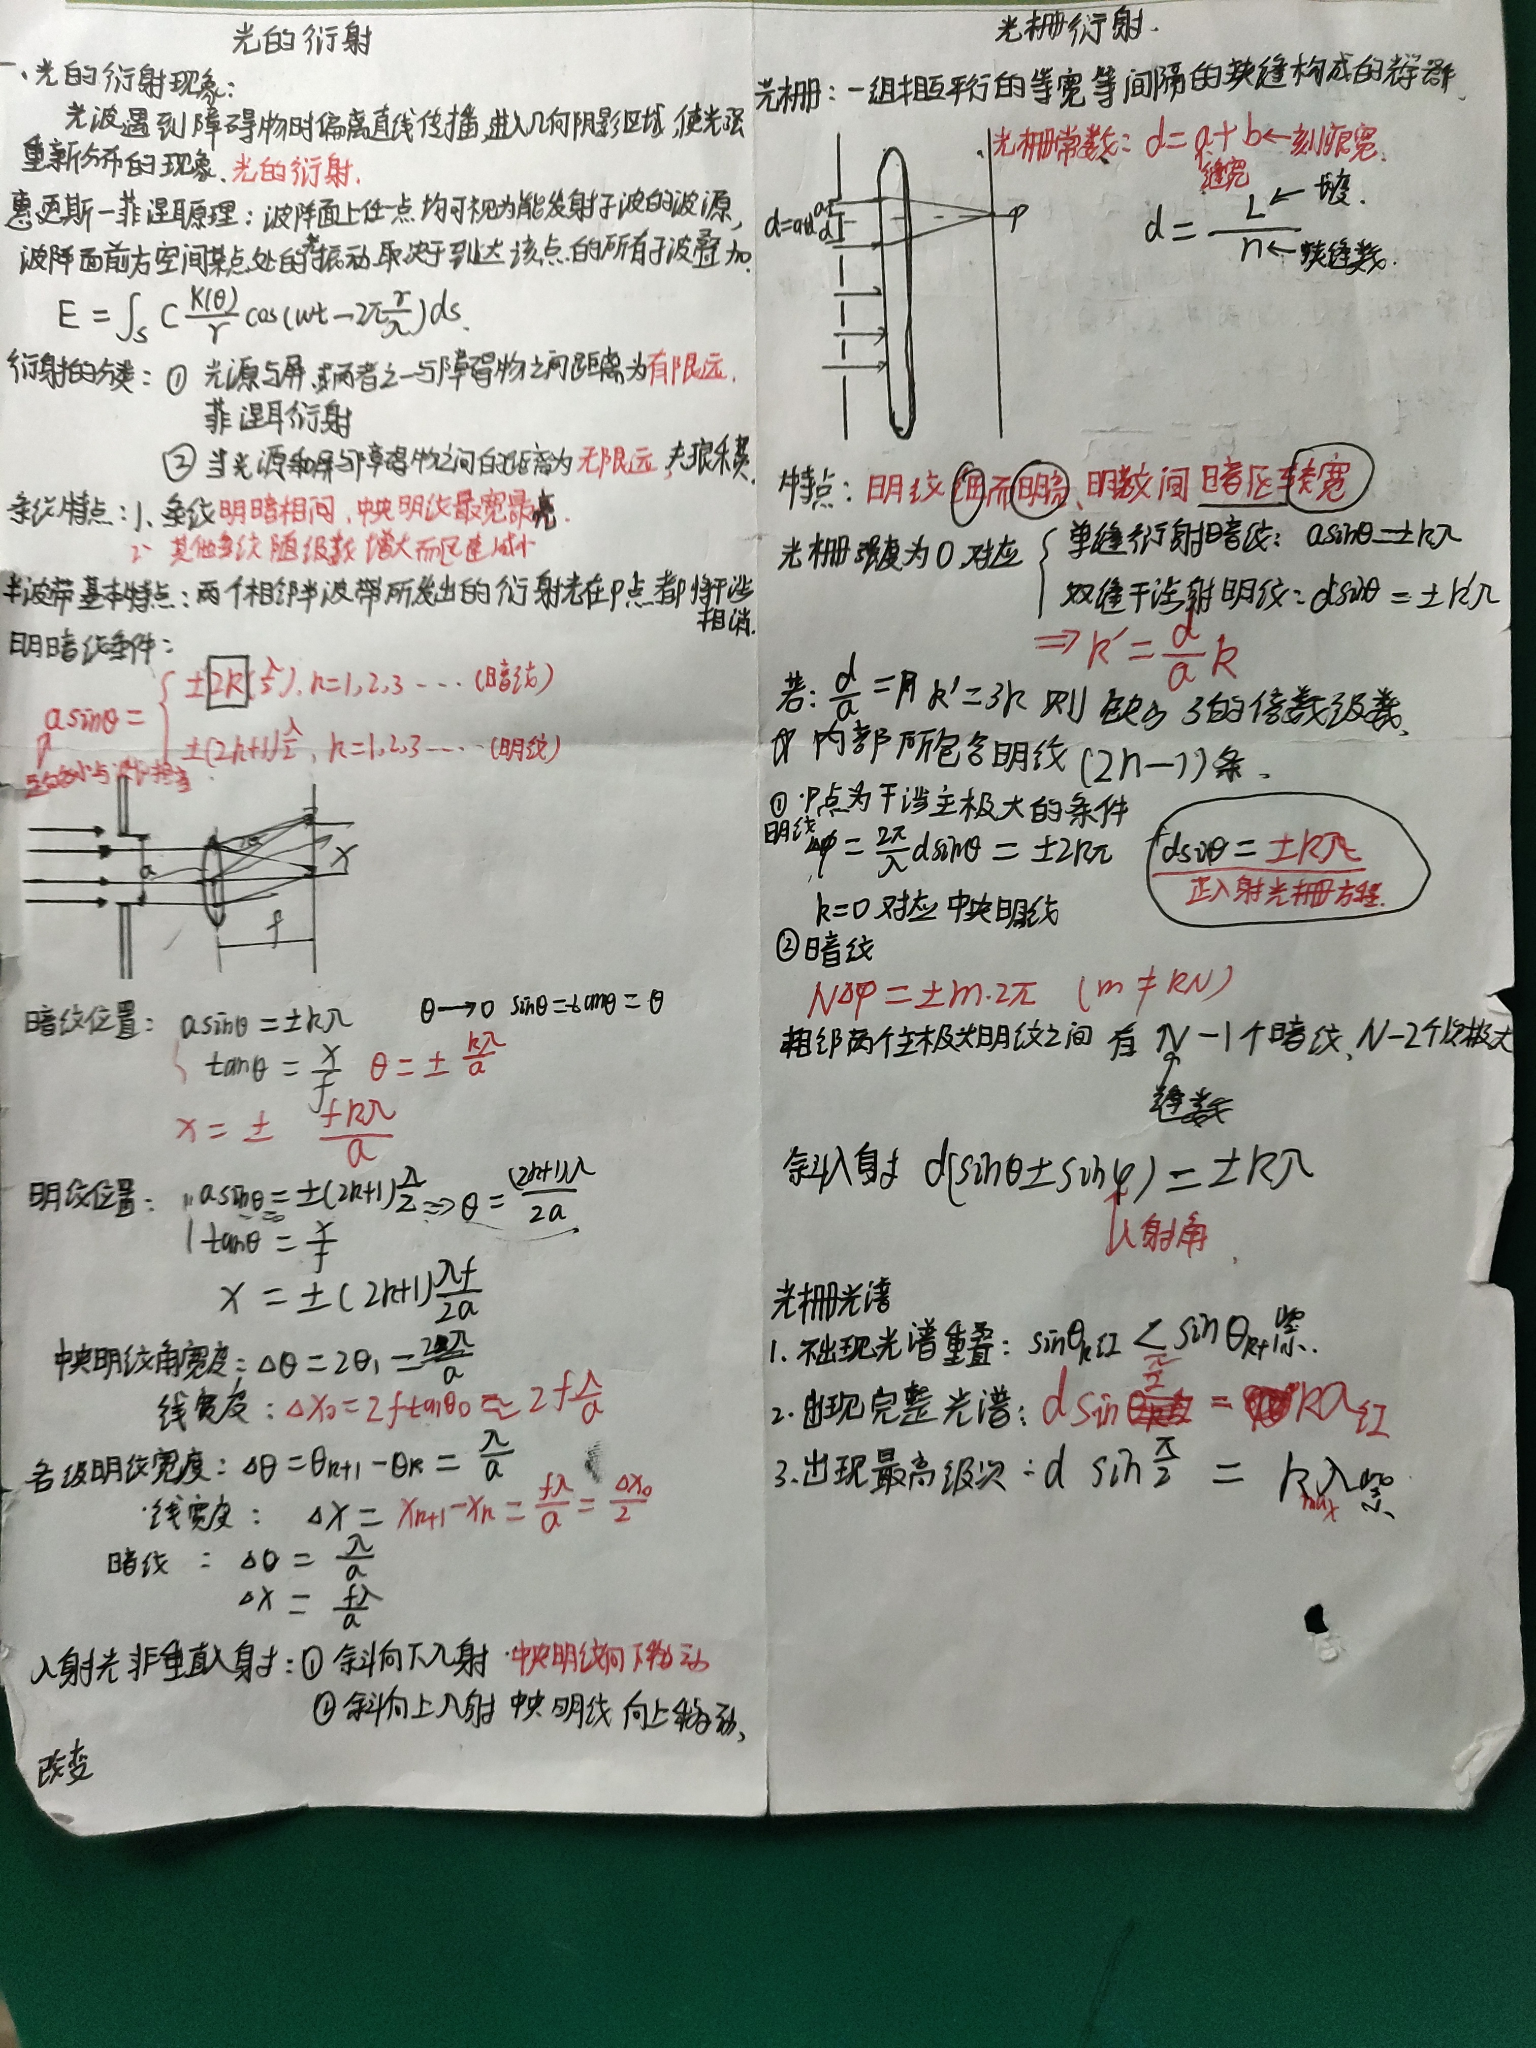 光的衍射
一、光的衍射现象:
光波遇到障碍物时偏离直线传播,进入几何阴影区域,使光强
重新分布的现象、光的衍射.
惠更斯一菲涅耳原理:波阵面上任一点均可视为能发射子波的波源,
波阵面前方空间某点处的光振动取决于到达该点的所有子波叠加.
E = ∫s C K(θ)/r cos(wt-2π r/λ)ds.
衍射的分类:① 光源与屏或两者之一与障碍物之间距离为有限远.
菲涅耳衍射
② 当光源和屏与障碍物之间的距离为无限远,夫琅禾费.
条纹特点:1、条纹明暗相间,中央明纹最宽最亮.
2、其他条纹随级数增大而迅速减小
半波带基本特点:两个相邻半波带所发出的衍射光在P点都将干涉
相消.
明暗纹条件:
asinθ = { ±2k(λ/2), k=1,2,3 ···· (暗纹)
±(2k+1)λ/2, k=1,2,3 ···· (明纹)
a
x
f
暗纹位置: asinθ=±kλ θ→0 sinθ=tanθ=θ
tanθ = x/f θ=± kλ/a
x = ± fkλ/a
明纹位置: asinθ=±(2k+1)λ/2 => θ= (2k+1)λ/2a
tanθ = x/f
x = ±(2k+1)λf/2a
中央明纹角宽度:Δθ=2θ₁=2λ/a
线宽度:Δx₀=2ftanθ₀≈2fλ/a
各级明纹宽度:Δθ=θk+1-θk=λ/a
线宽度: Δx = xk+1-xk = fλ/a = Δx₀/2
暗纹 : Δθ = λ/a
Δx = fλ/a
入射光非垂直入射:① 斜向下入射 中央明纹向下移动
② 斜向上入射 中央明纹向上移动、
改变
光栅衍射.
光栅:一组相互平行的等宽等间隔的狭缝构成的光学器件.
光栅常数:d=a+b←刻痕宽.
缝宽
d = L/n
←长度.
←狭缝数.
P
特点:明纹细而明亮、明纹间暗区较宽
光栅强度为0对应 { 单缝衍射暗纹: asinθ=±kλ
双缝干涉明纹:dsinθ=±k'λ
=> k' = d/a k
若: d/a = k'=3k 则 缺少3的倍数级数、
内部所包含明纹(2n-1)条.
① P点为干涉主极大的条件
明纹
Δφ = 2π/λ dsinθ = ±2kπ
dsinθ = ±kλ
正入射光栅方程.
k=0对应中央明纹
②暗纹
NΔφ = ±m·2π (m≠kN)
相邻两个主极大明纹之间有N-1个暗纹、N-2个次极大
缝数
斜入射 d(sinθ±sinφ)=±kλ
入射角.
光栅光谱
1. 不出现光谱重叠:sinθk红 < sinθk+1紫.
2. 出现完整光谱:d sin π/2 = kλ红
3. 出现最高级次:d sin π/2 = kmax λ紫